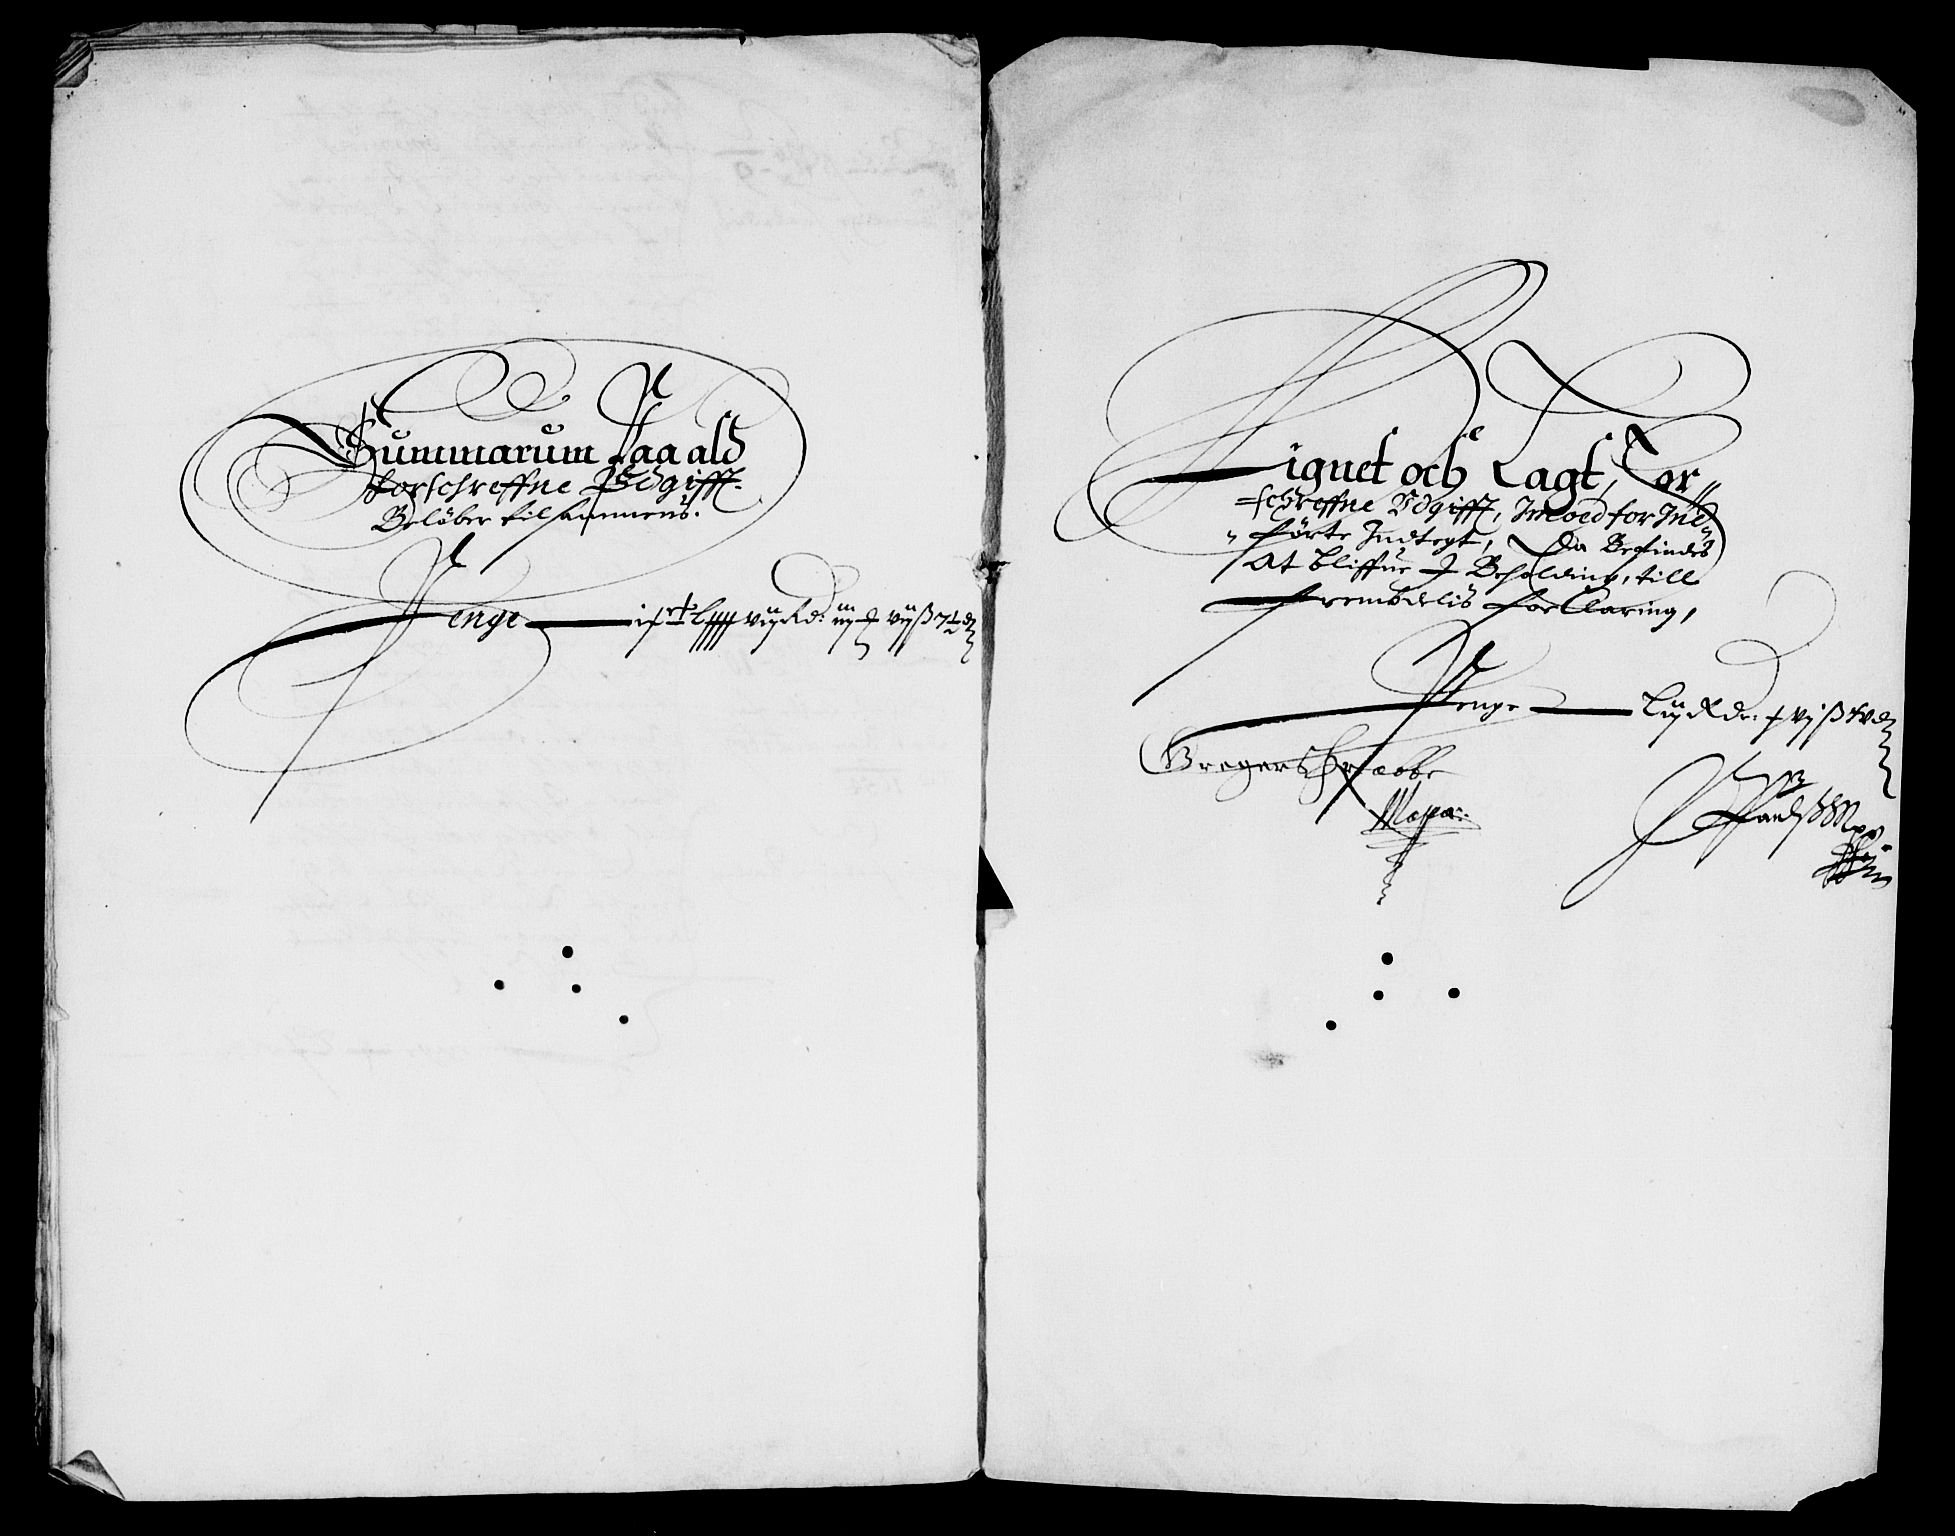 Summarum Paa ald
forschreffne Vdgifft
Beløber tilsammens.
Penge
Lignet och Lagt, for
schreffne Vdgifft, Imoed for Ind
førte Indtegt, Da Befindes
At bliffue I Beholding, till
frembdelis forClaring,
Penge
Gregers Krabbe